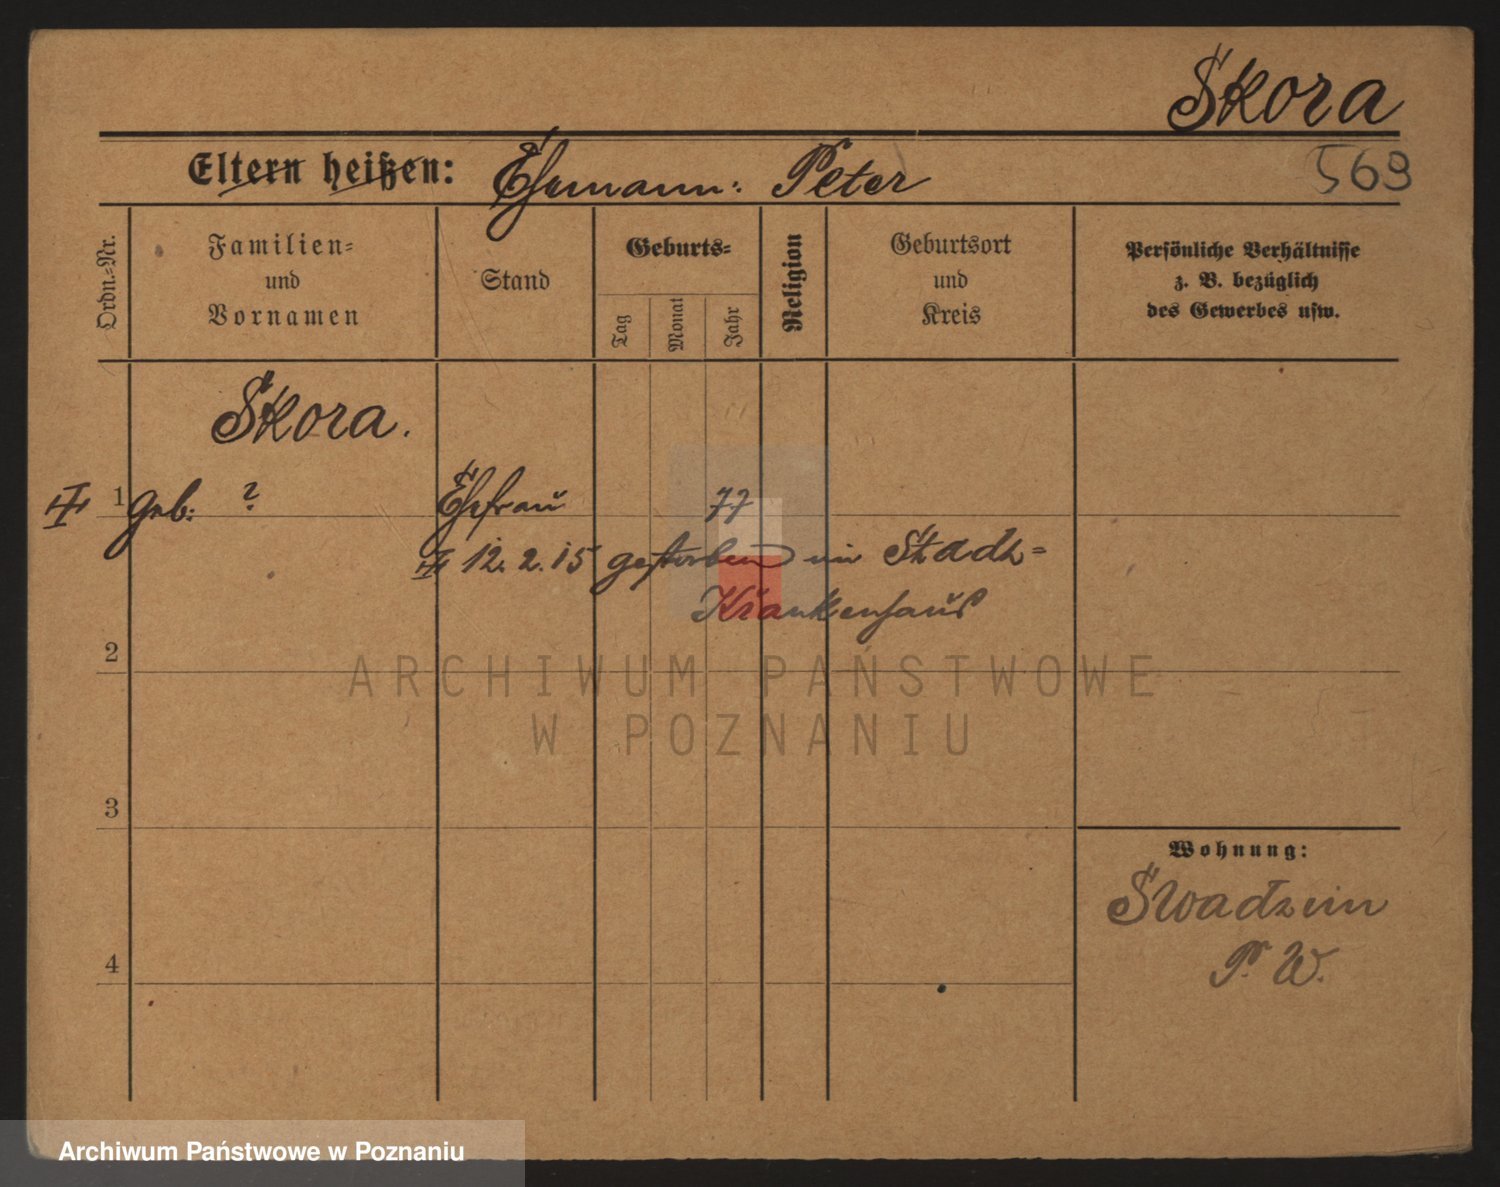 Skora
Eltern heißen: Ehemann: Peter
569
Ordn.-Nr.
Familien-
und
Vornamen
Stand
Geburts-
Tag
Monat
Jahr
Religion
Geburtsort
und
Kreis
Persönliche Verhältnisse
z. B. bezüglich
des Gewerbes usw.
Skora.
1 geb: ? Ehefrau 77
12. 2. 15 gestorben im Stadt-
Krankenhaus
2
ARCHIWUM PAŃSTWOWE
W POZNANIU
3
Wohnung:
Swadzim
P. W.
4
Archiwum Państwowe w Poznaniu